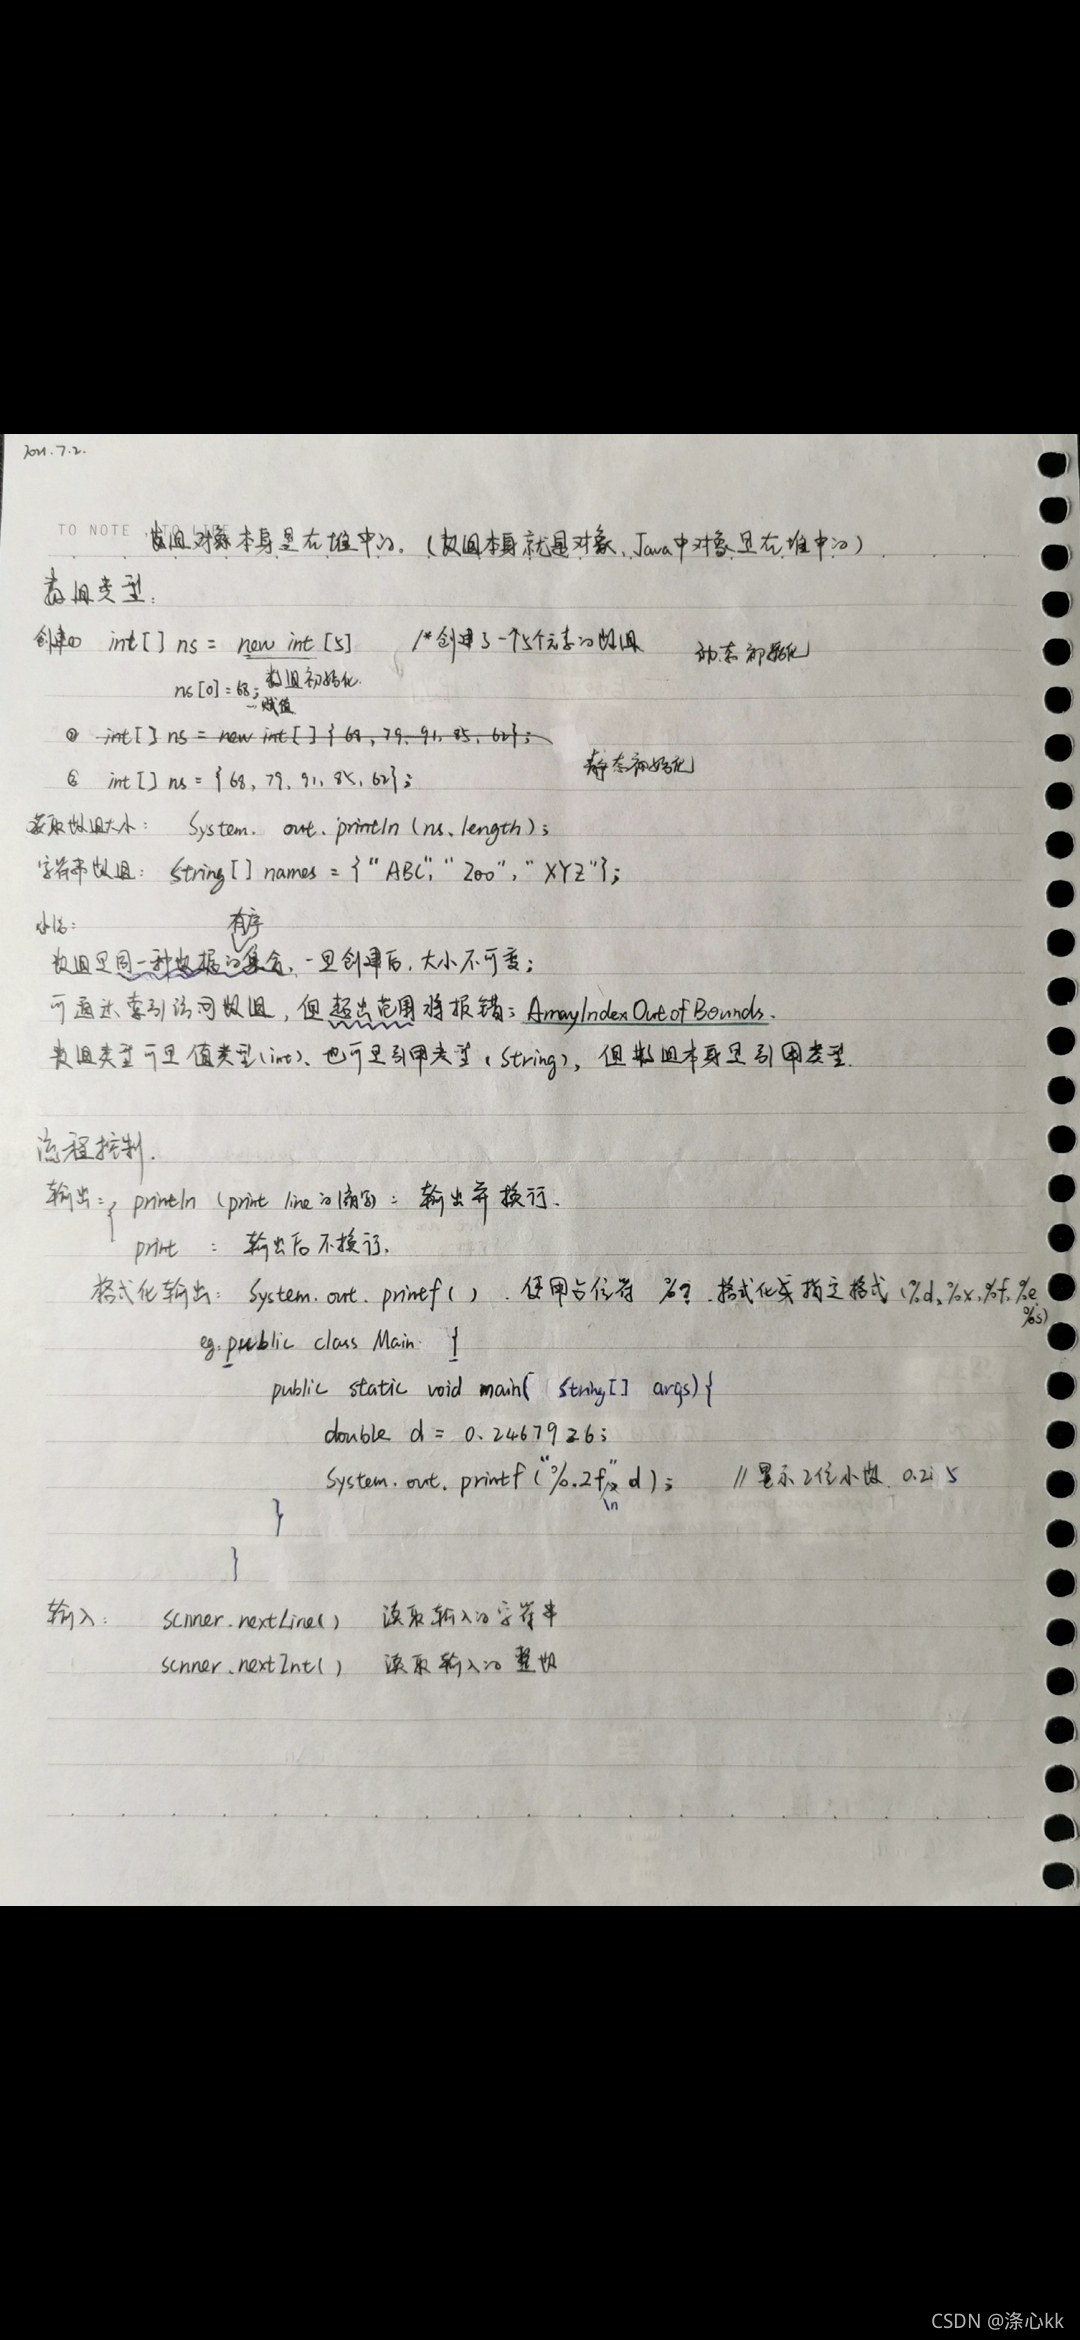 2021.7.2.
TO NOTE
数组对象本身是在堆中的。(数组本身就是对象、Java中对象是在堆中的)
数组类型:
创建① int[] ns = new int [5] /*创建了一个5个元素的数组 动态初始化
ns[0]=68; 数组初始化.
赋值
② int[] ns = new int[] {68, 79, 91, 85, 62};
③ int[] ns = {68, 79, 91, 85, 62}; 静态初始化
获取数组大小: System. out. println (ns. length);
字符串数组: String[] names = {"ABC", "Zoo", "XYZ"};
小结: 有序
数组是同一种数据的集合, 一旦创建后, 大小不可变;
可通过索引访问数组, 但超出范围将报错: ArrayIndexOutofBounds.
数组类型可是值类型(int)、也可是引用类型(String), 但数组本身是引用类型.
流程控制.
输出: { println (print line的缩写): 输出并换行.
print : 输出后不换行.
格式化输出: System. out. printf( ) . 使用占位符 %?. 格式化成指定格式(%d, %x, %f, %e
%s)
eg. public class Main {
public static void main( String[] args){
double d = 0.2467926;
System. out. printf ("%.2f\n" d); //显示2位小数 0.25
}
}
输入: scnner.nextLine() 读取输入的字符串
scnner.nextInt() 读取输入的整数
CSDN @涤心kk